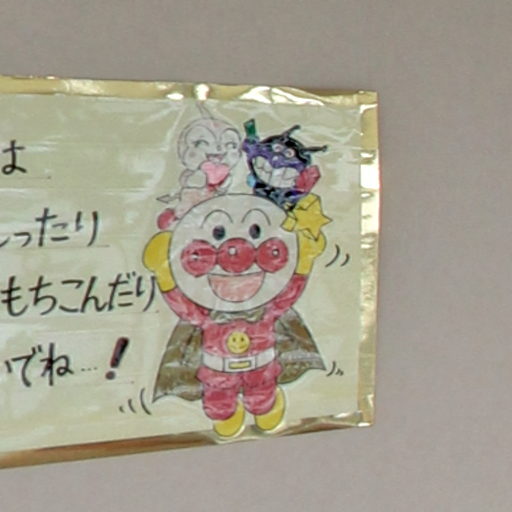 は
ったり
もちこんだり
いでね…!